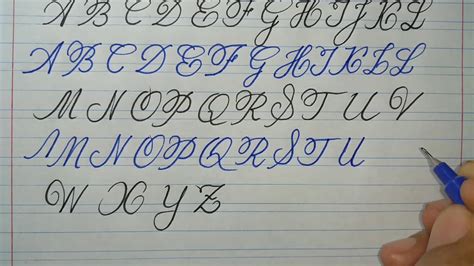 A B C D E F G H I J K L
A B C D E F G H I J K L
M N O P Q R S T U V
M N O P Q R S T U
W X Y Z